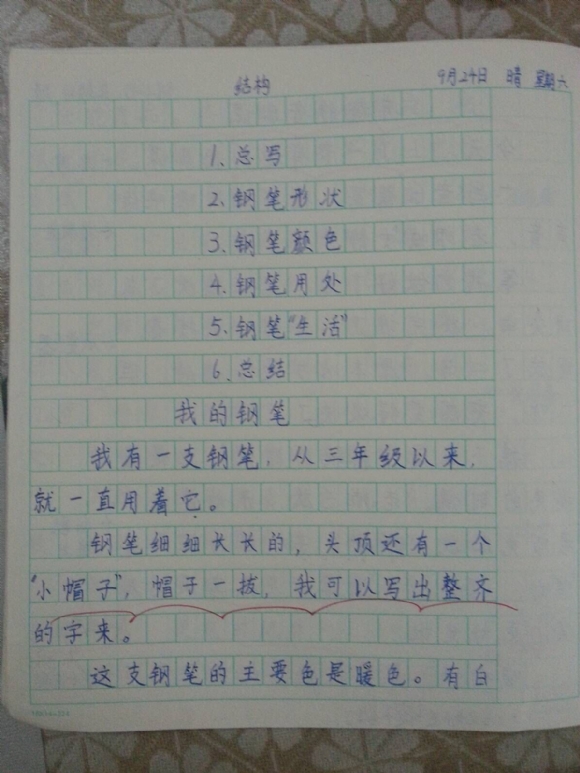 结构 9月24日 晴 星期六
1、总写
2、钢笔形状
3、钢笔颜色
4、钢笔用处
5、钢笔"生活"
6、总结
我的钢笔
我有一支钢笔，从三年级以来，
就一直用着它。
钢笔细细长长的，头顶还有一个
"小帽子"，帽子一拔，我可以写出整齐
的字来。
这支钢笔的主要色是暖色。有白